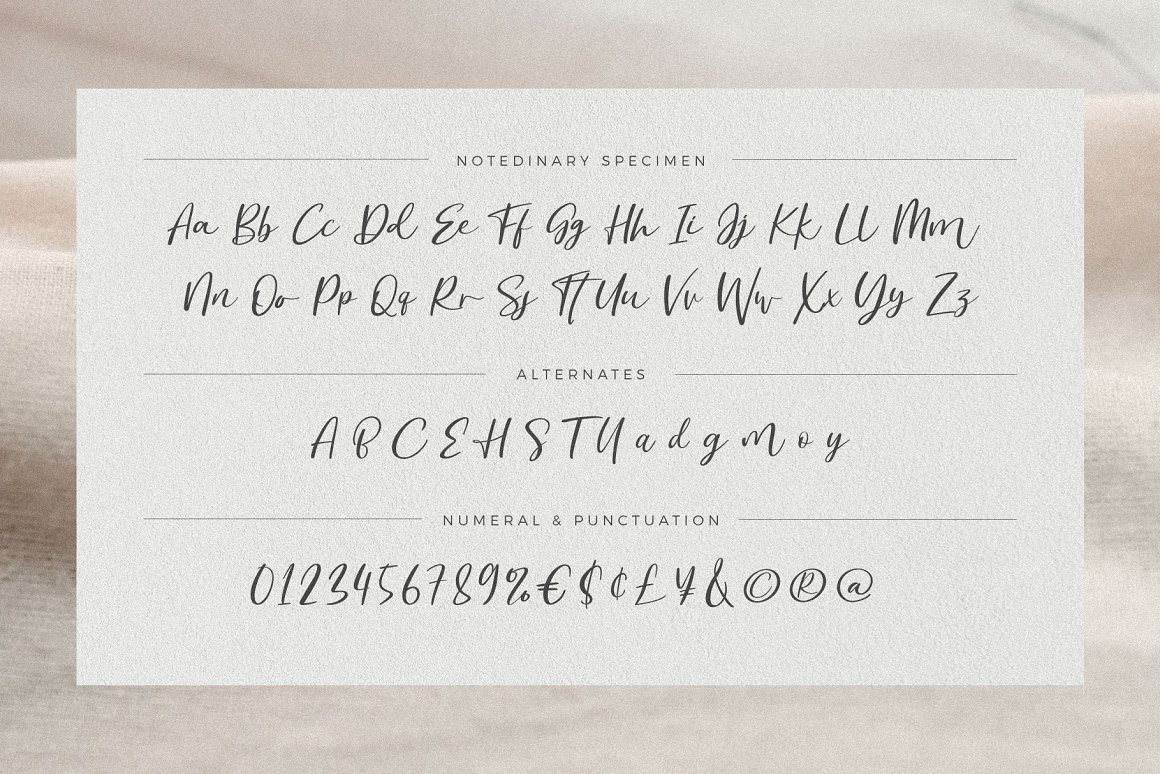 NOTEDINARY SPECIMEN
Aa Bb Cc Dd Ee Ff Gg Hh Ii Jj Kk Ll Mm
Nn Oo Pp Qq Rr Ss Tt Uu Vv Ww Xx Yy Zz
ALTERNATES
A B C E H S T U a d g m o y
NUMERAL & PUNCTUATION
0123456789%€$¢£¥&©®@